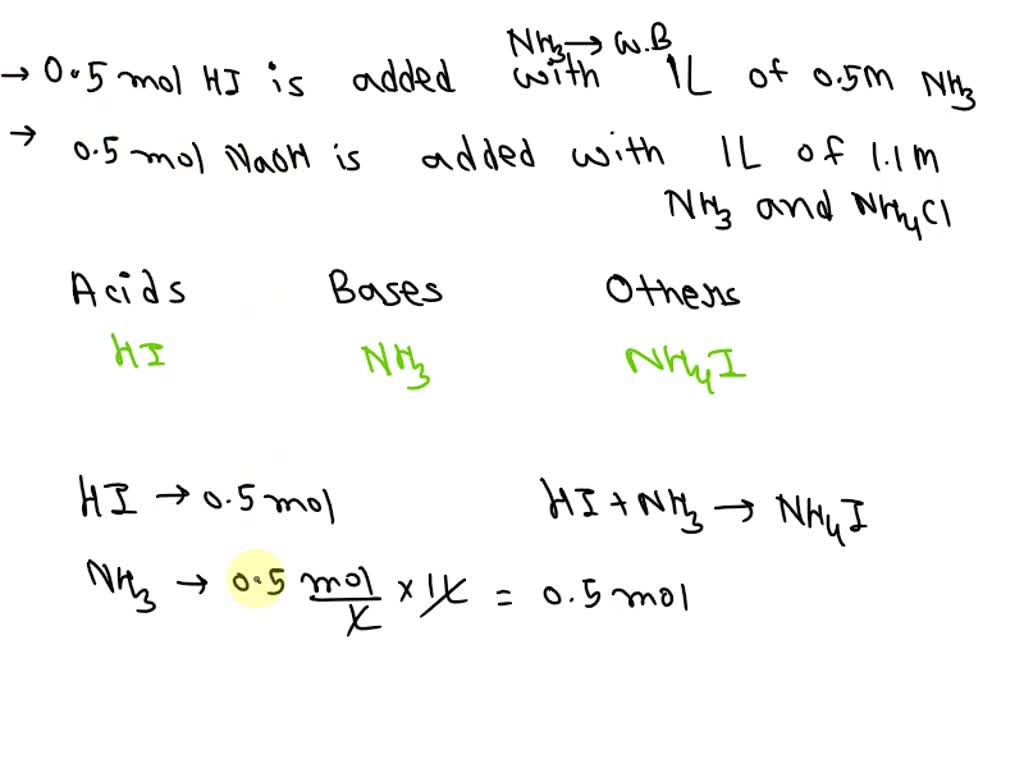 NH3 → W.B
→ 0.5 mol HI is added with 1L of 0.5M NH3
→ 0.5 mol NaOH is added with 1L of 1.1M
NH3 and NH4Cl
Acids Bases Others
HI NH3 NH4I
HI → 0.5 mol HI + NH3 → NH4I
NH3 → 0.5 mol/L × 1L = 0.5 mol